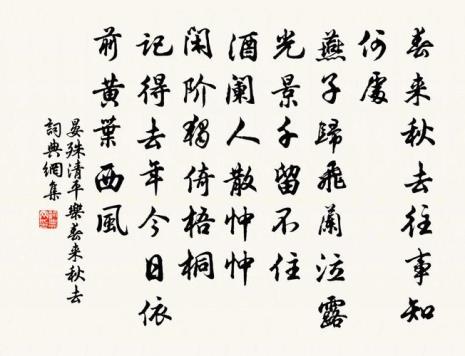 春来秋去往事知
何處
燕子歸飛蘭泣露
光景千留不住
酒阑人散忡忡
闲阶獨倚梧桐
記得去年今日依
前黄葉西風
晏殊清平樂春来秋去
詞典網集